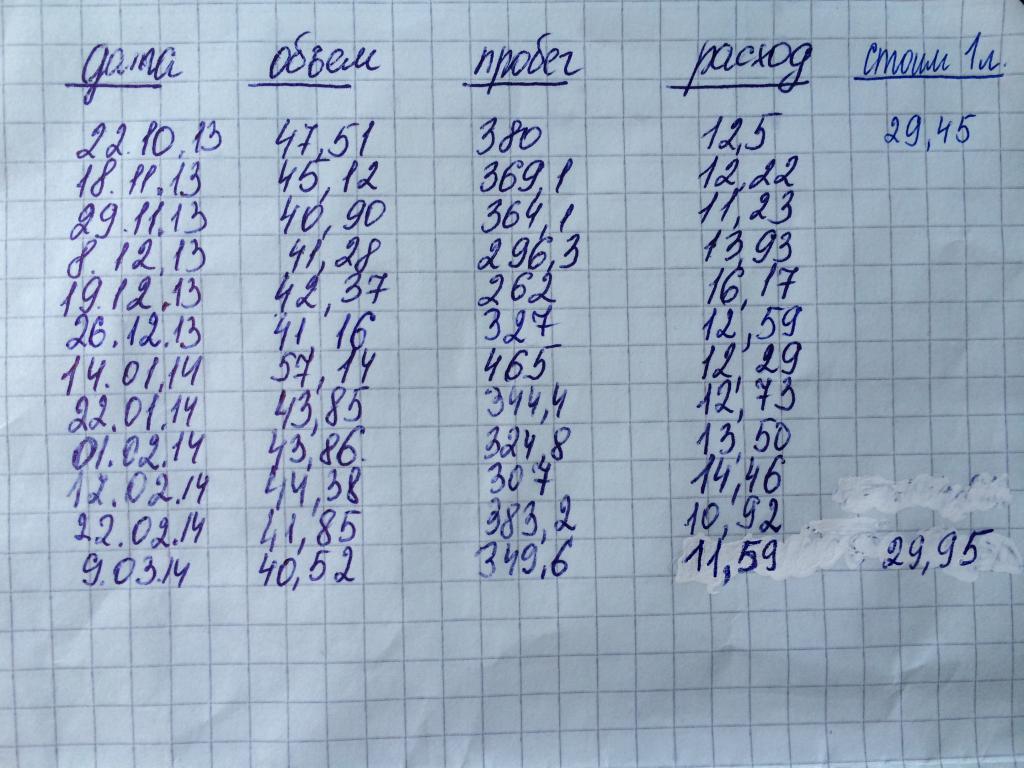 дата объем пробег расход стоим 1л.
22.10.13 47,51 380 12,5 29,45
18.11.13 45,12 369,1 12,22
29.11.13 40,90 364,1 11,23
8.12.13 41,28 296,3 13,93
19.12.13 42,37 262 16,17
26.12.13 41,16 327 12,59
14.01.14 57,14 465 12,29
22.01.14 43,85 344,4 12,73
01.02.14 43,86 324,8 13,50
12.02.14 44,38 307 14,46
22.02.14 41,85 383,2 10,92
9.03.14 40,52 349,6 11,59 29,95